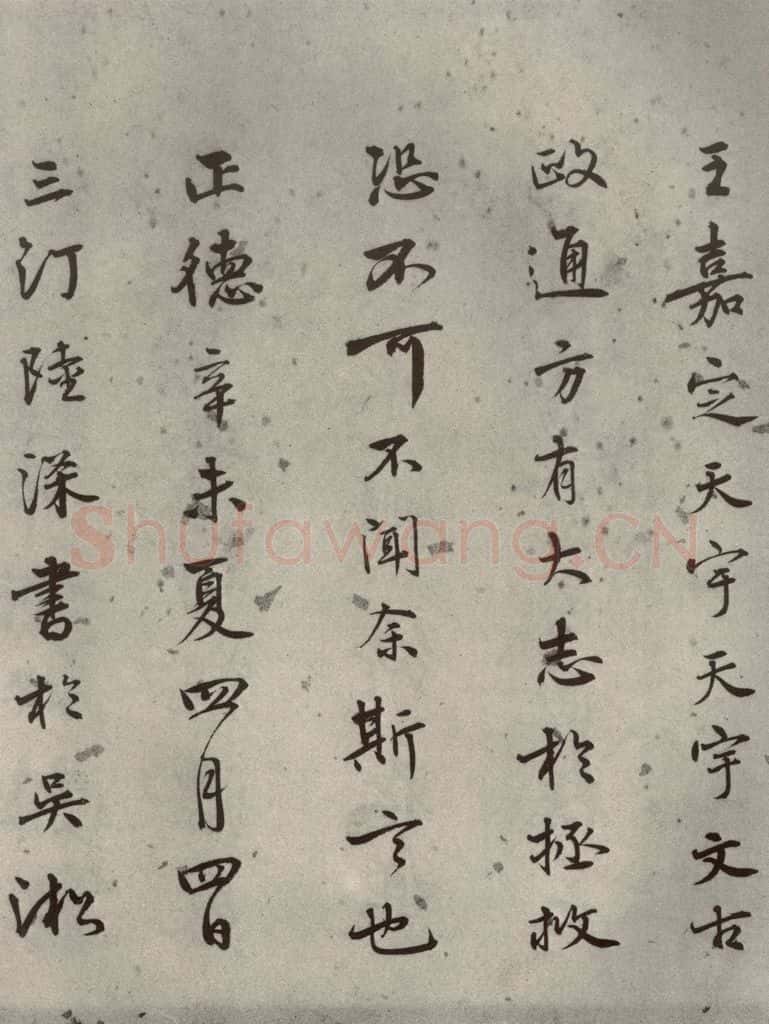 王嘉定天宇天宇文古
政通方有大志於拯救
恐不可不闻余斯言也
正德辛未夏四月四日
三汀陸深書於吴淞
Shufawang.CN